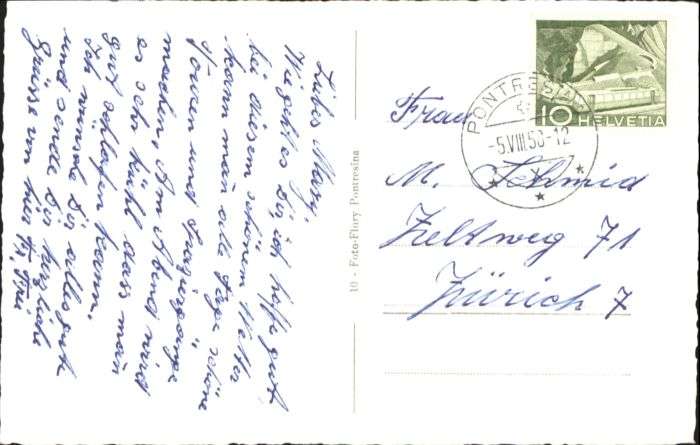 Liebes Mary,
Wie geht es Dir, ich hoffe gut
bei diesem schönem Wetter
kann man alle Tage schöne
Touren und Spaziergänge
machen. Am Abend wird
es sehr kühl dass man
gut schlafen kann.
Ich wünsche Dir alles gute
und sende Dir herzliche
Grüsse von hier
10 - Foto-Flury Pontresina
PONTRESINA
-5.VIII.50-12
10 HELVETIA
Frau
M. Schmid
Zeltweg 71
Zürich 7